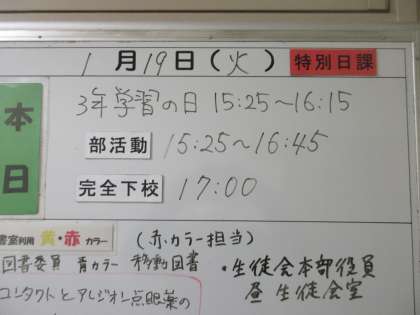 1月19日(火) 特別日課
本日
3年学習の日 15:25～16:15
部活動 15:25～16:45
完全下校 17:00
書室利用 黄・赤 カラー (赤カラー担当)
図書委員 青カラー 移動図書
・生徒会本部役員
昼 生徒会室
コンタクトとアレジオン点眼薬の